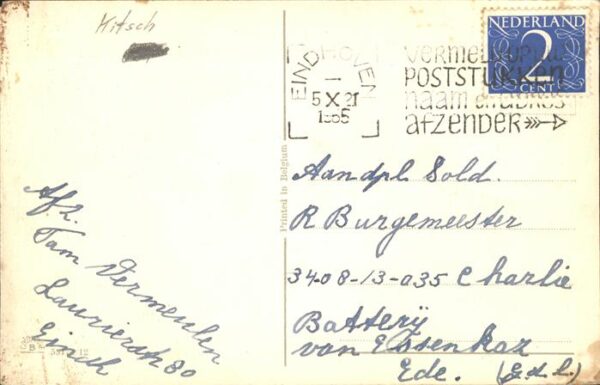 Kitsch
NEDERLAND
2
CENT
EINDHOVEN
5 X 21
1955
VERMELD OP UW
POSTSTUKKEN
naam en adres
afzender
Printed in Belgium
Aandpl. Sold.
R Burgemeester
3408-13-035 Charlie
Batterij
van Essenkaz
Ede. (Gld.)
Afz.
Tam Vermeulen
Laurierstr 80
Eindh